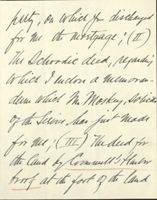 perty, on which you discharged
for me the mortgage; (II)
The Schoodic deed, regarding
which I enclose a memoran-
dum which Mr. Mackay, Solicitor
of the Senate has just made
for me; (III) The deed for
the land by Cromwell's Harbor
at the foot of the land